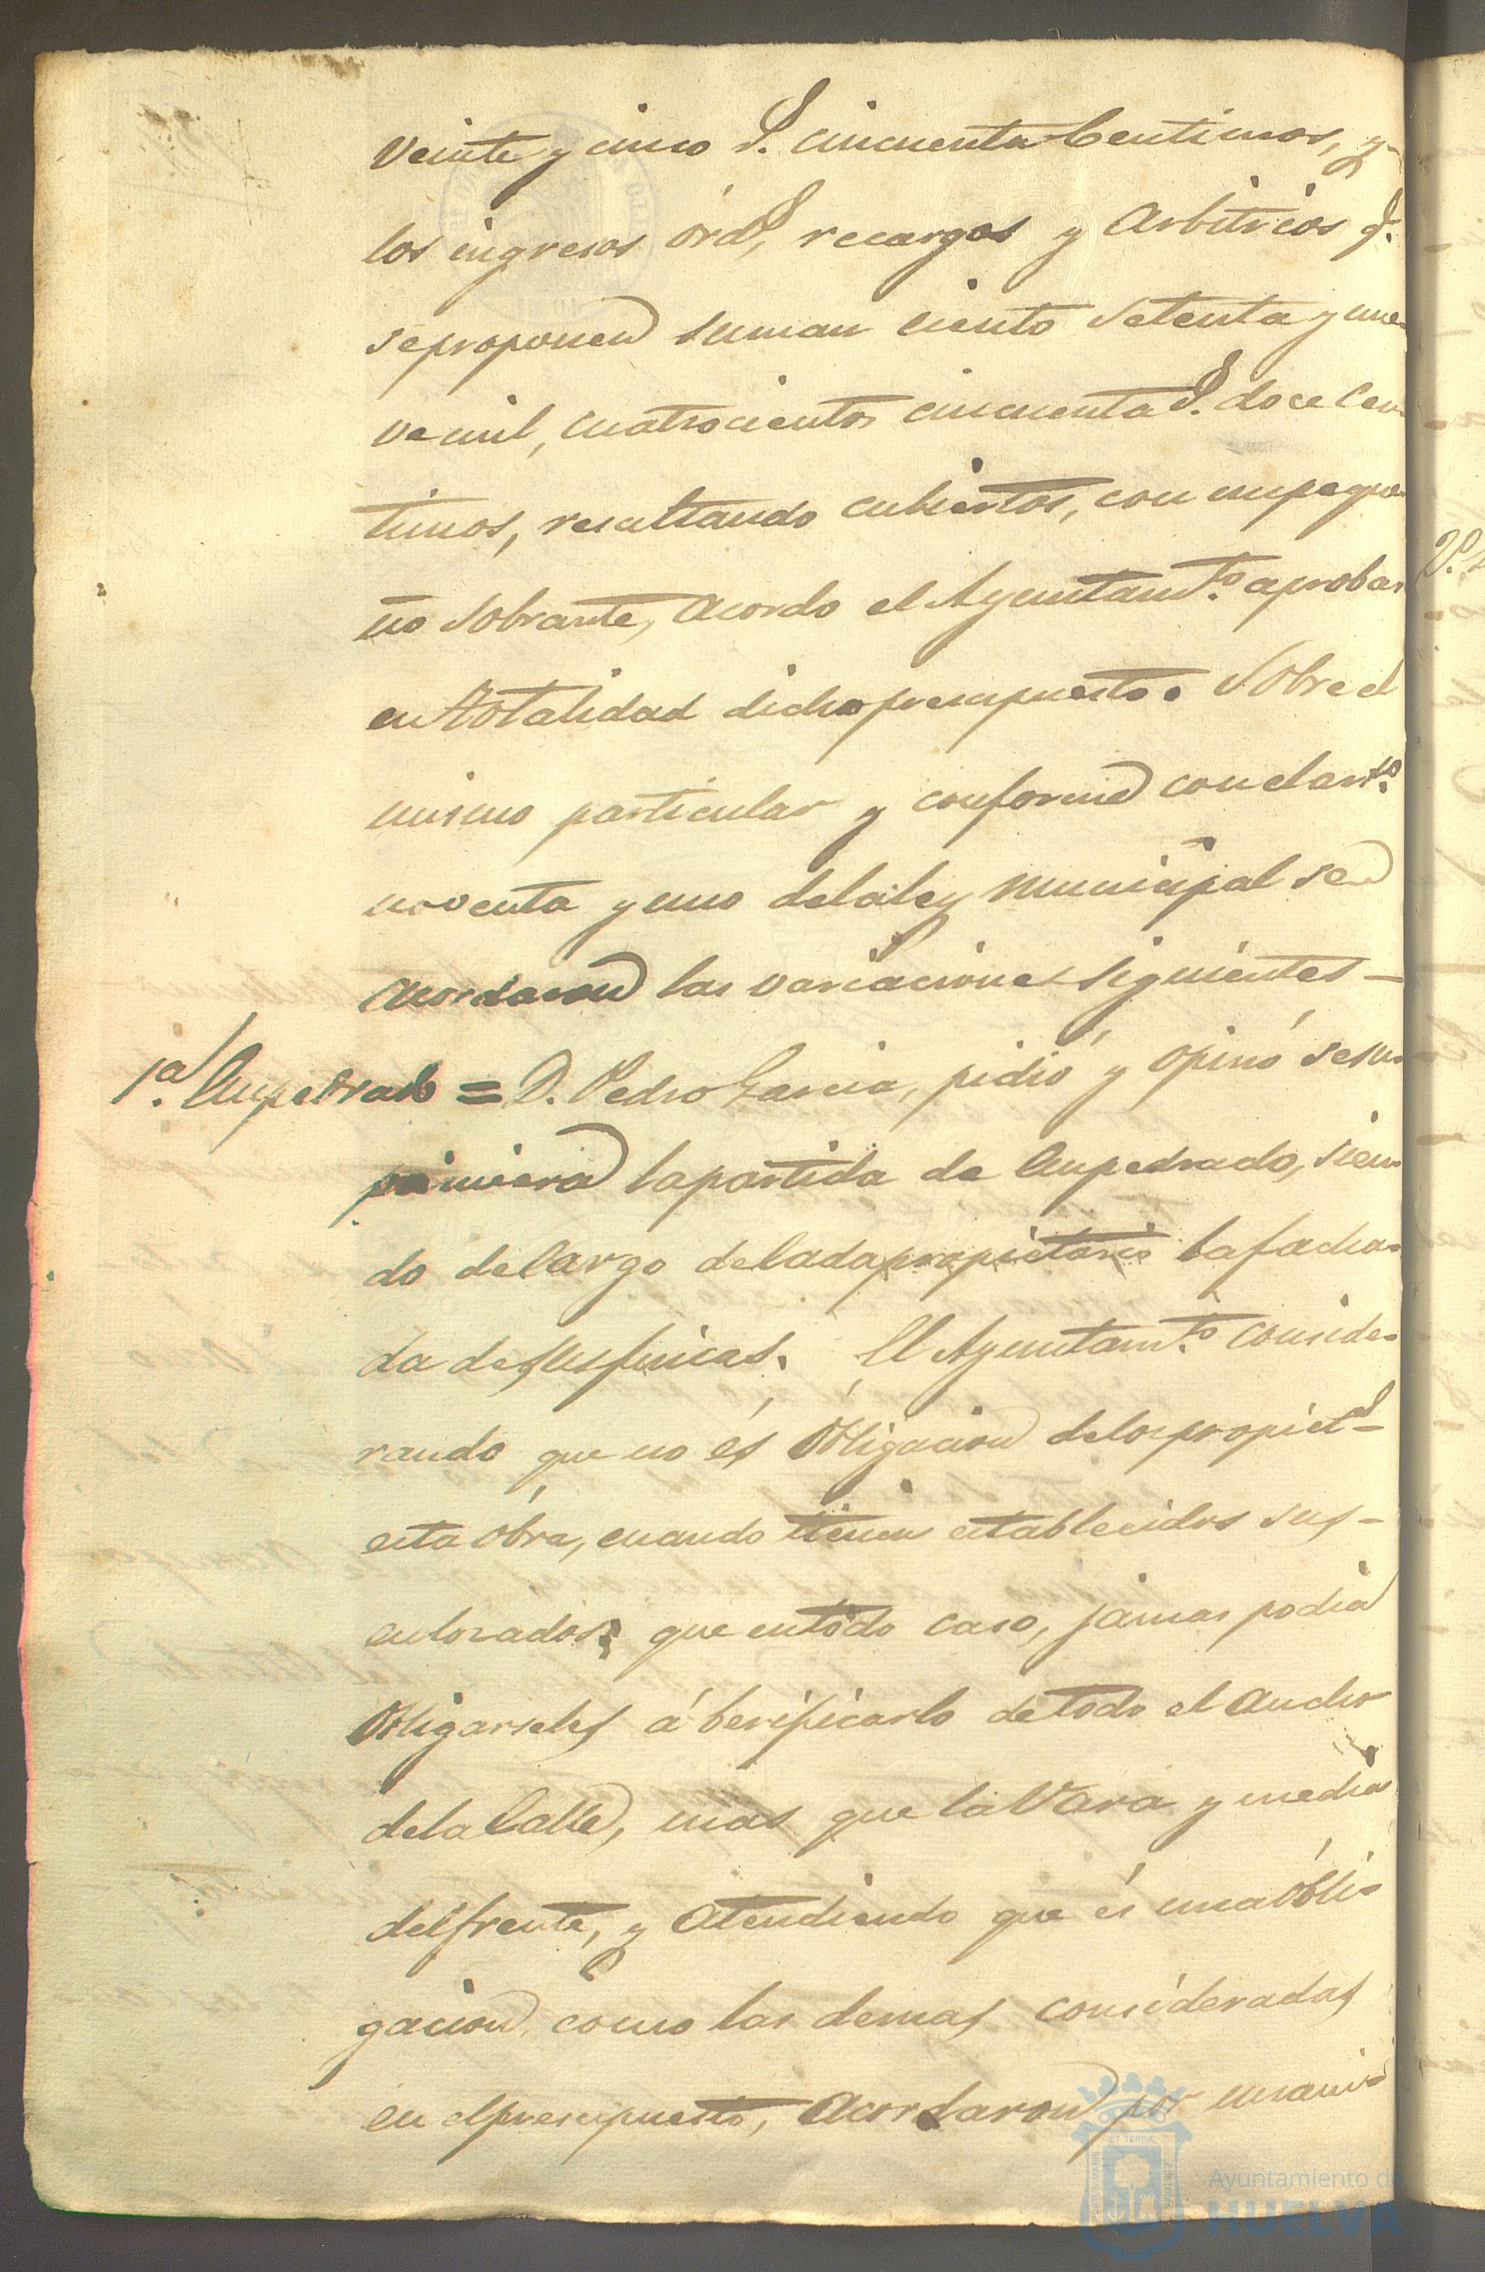 veinte y cinco P. cincuenta Centimos, y
los ingresos órds, recargos y arbitrios q.
se proponen suman ciento setenta y nue-
ve mil, cuatrocientos cincuenta P. doce Cen-
timos, resultando cubiertos, con un peque-
ño sobrante, acordo el Ayuntamto. aprobar
en totalidad dicho presupuesto. Sobre el
mismo particular y conforme con el arto.
noventa y uno de la ley municipal se
acordaron las variaciones siguientes—
1a. Empedrado = D. Pedro Garcia, pidió y opinó se su-
primiera la partida de Empedrado, sien-
do de Cargo de Cada propietario la facha-
da de sus fincas. El Ayuntamto. conside-
rando que no és obligacion de los propiets-
esta óbra, cuando tienen establecidos sus-
enlozados: que en todo caso, jamas podia
obligarseles á berificarlo de todo el ancho
de la Calle, mas que la Vara y media
del frente, y atendiendo que és una óbli-
gacion, como las demas consideradas
en el presupuesto, acordaron por
Ayuntamiento de
HUELVA